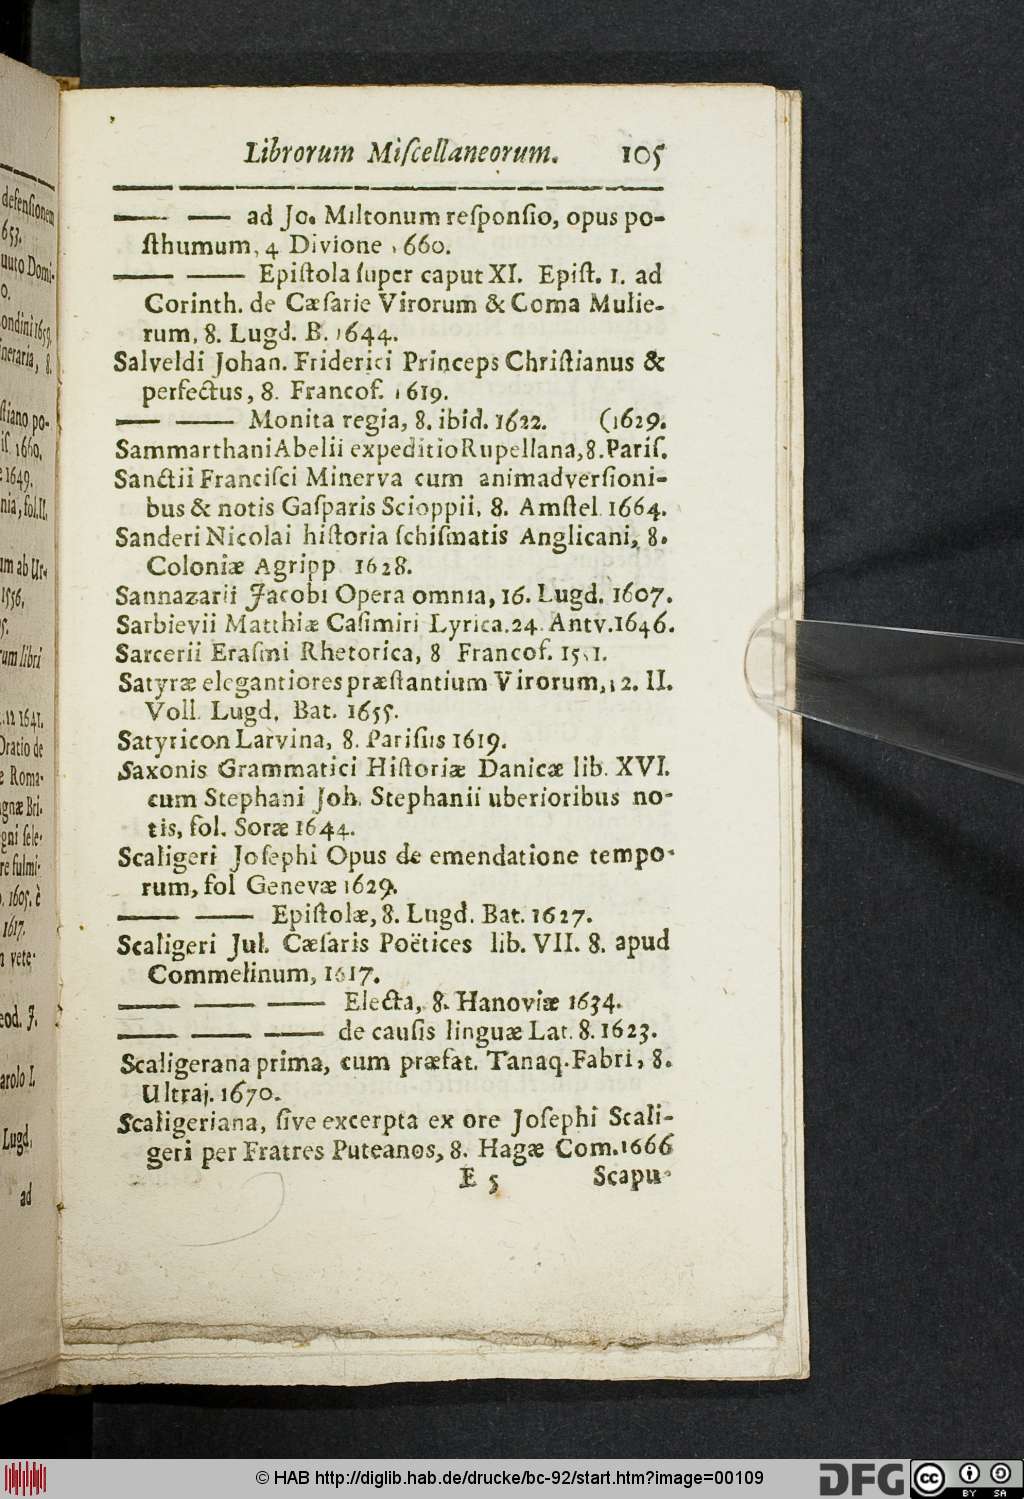 Librorum Miſcellaneorum. 105
—— —— ad Jo. Miltonum reſponſio, opus po-
ſthumum, 4 Divione 1660.
—— —— Epiſtola ſuper caput XI. Epiſt. 1. ad
Corinth. de Cæſarie Virorum & Coma Mulie-
rum, 8. Lugd. B. 1644.
Salveldi Johan. Friderici Princeps Chriſtianus &
perfectus, 8. Francof. 1619.
—— —— Monita regia, 8. ibid. 1622. (1629.
Sammarthani Abelii expeditio Rupellana, 8. Pariſ.
Sanctii Franciſci Minerva cum animadverſioni-
bus & notis Gaſparis Scioppii, 8. Amſtel. 1664.
Sanderi Nicolai hiſtoria ſchiſmatis Anglicani, 8.
Coloniæ Agripp 1628.
Sannazarii Jacobi Opera omnia, 16. Lugd. 1607.
Sarbievii Matthiæ Caſimiri Lyrica. 24. Antv. 1646.
Sarcerii Eraſmi Rhetorica, 8 Francof.
Satyræ elegantiores præſtantium Virorum, 12. II.
Voll. Lugd. Bat. 1655.
Satyricon Larvina, 8. Pariſiis 1619.
Saxonis Grammatici Hiſtoriæ Danicæ lib. XVI.
cum Stephani Joh. Stephanii uberioribus no-
tis, fol. Soræ 1644.
Scaligeri Joſephi Opus de emendatione tempo-
rum, fol Genevæ 1629.
—— —— Epiſtolæ, 8. Lugd. Bat. 1627.
Scaligeri Jul. Cæſaris Poëtices lib. VII. 8. apud
Commelinum, 1617.
—— —— —— Electa, 8. Hanoviæ 1634.
—— —— —— de cauſis linguæ Lat. 8. 1623.
Scaligerana prima, cum præfat. Tanaq. Fabri, 8.
Ultraj. 1670.
Scaligeriana, ſive excerpta ex ore Joſephi Scali-
geri per Fratres Puteanos, 8. Hagæ Com. 1666
E 5 Scapu-
defenſionem
653.
Domi-
ondini 1659.
neraria, 8.
ſtiano po-
iſ. 1660.
1649.
nia, fol. II.
um ab Ur-
1556.
rum libri
12 1641.
Oratio de
e Roma-
agnæ Bri-
gni ſele-
re fulmi-
1605. è
1617.
n vete-
eod. J.
arolo I.
Lugd.
ad
© HAB http://diglib.hab.de/drucke/bc-92/start.htm?image=00109
DFG
cc BY SA